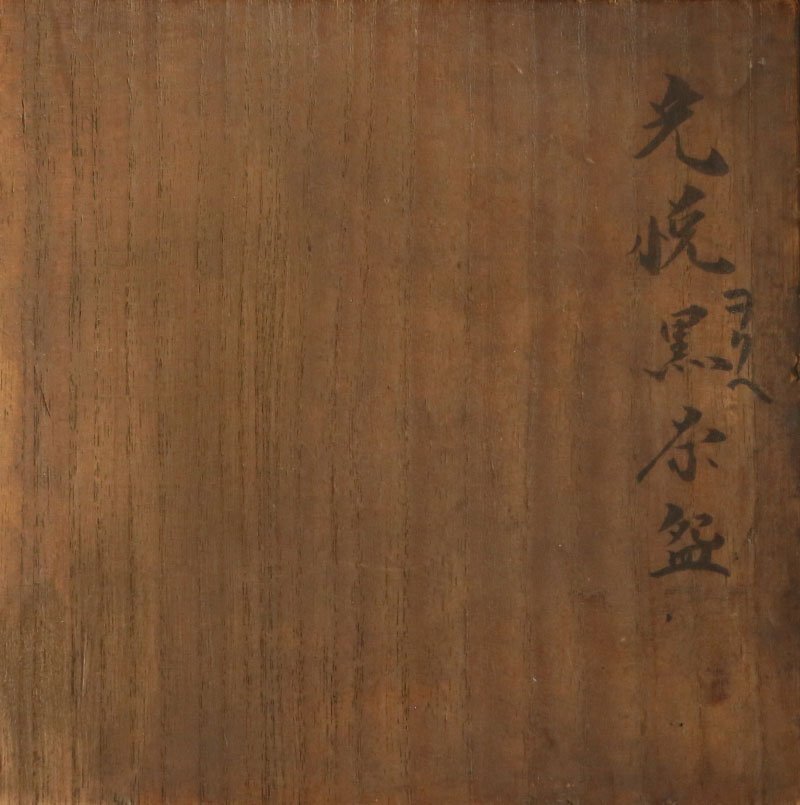 光悦黒茶盌
ヲリヘ